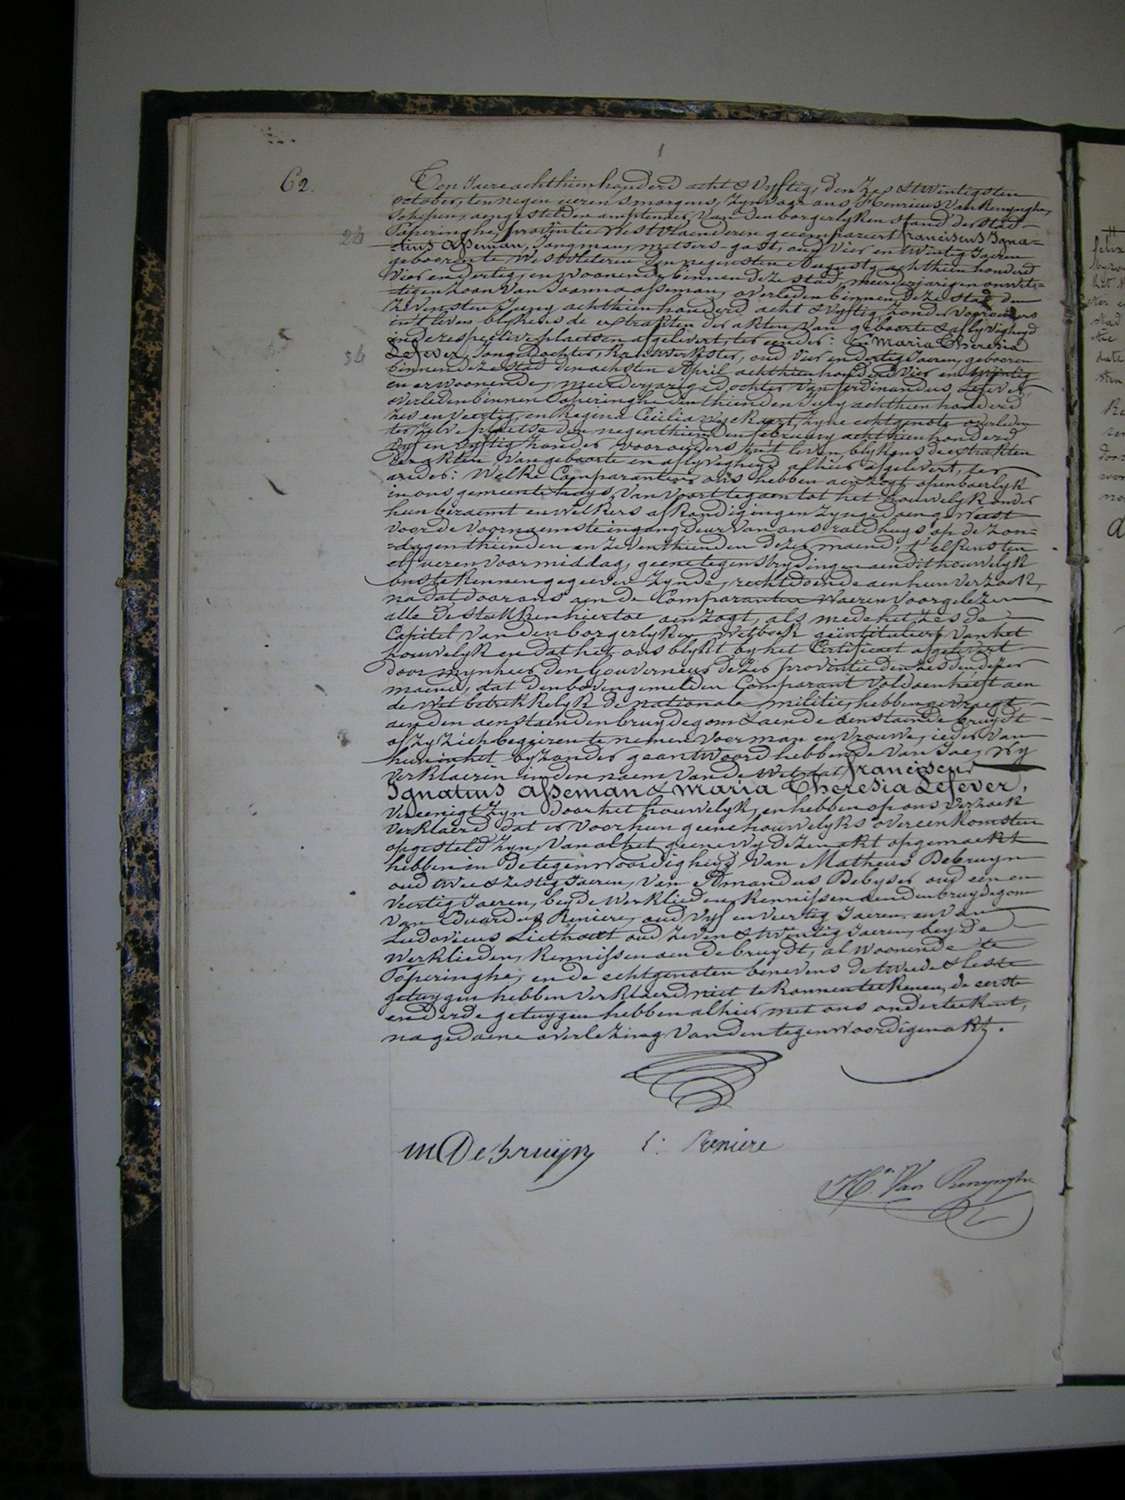 62.
Ten Jaere achthien honderd acht & vyftig, den zes & twintigsten
october, ten negen ueren smorgens, zyn voor ons Henricus Van Renynghe,
Schepen, aengestelden amptenaer van den borgerlyken stand der stad
Poperinghe, provintie West Vlaenderen gecompareert franciscus Igna-
24
tius Asseman, Jongman, metsers-gast, oud vier en twintig Jaeren
geboren te Westvleteren den negensten Augusty achthien honderd
vier en dertig, en woonende binnen deze stad, meerderjarigen onwet-
tigen zoon van Joanna Asseman, overleden binnen deze stad den
zevensten Juny achthien honderd acht & vyftig, zonder vooroúders
in't leven, blykens de extrakten der akten van geboorte & aflyvigheyd
in de respective plaetsen afgelevert, ter eender: En Maria Theresia
34
Lefever, Jonge dochter, kantwerkster, oud vier en dertig Jaeren, geboren
binnen deze stad den achsten April achthien honderd vier en twintig
en er woonende, meerderjarige dochter van ferdinandus Lefever,
overleden binnen Poperinghe den thienden July achthien honderd
zes en veertig, en Regina Cecilia Wyckaert, zyne echtgenote overleden
ter zelve plaetse den negenthienden february achthien honderd
vyf en vyftig, zonder vooroúders in't leven, blykens de extrakten
der akten van geboorte en aflyvigheyd alhier afgelevert, ter
andere: Welke Comparanten ons hebben aenzogt openbaerlyk
in ons gemeente huys, van voort te gaen tot het houwelyk onder
hun beraemt en welkers afkondigingen zyn gedaen geweest
voor de voornaemste ingang deur van ons raedhuys op de zon-
dagen thienden en zeventhienden dezer maend, t'elkensten
elf ueren voormiddag, geene tegenstrydingen aen dit houwelyk
ons te kennen gegeven zynde, rechtdoende aen hun verzoek,
na dat door ons aen de Comparanten waeren voorgelezen
alle de stukken hiertoe aenzogt, als mede het zesde
Capitel van den borgerlyken Wetboek geintituleert van het
houwelyk en dat het ons blykt by het Certificaet afgelevert
door mynheer den Gouverneur dezer provintie den zesden dezer
maend, dat den bovengemelden Comparant voldaen heeft aen
de Wet betrekkelyk de nationale militie, hebben gevraegt
aen den aenstaenden bruydegom & aen de aenstaende bruydt
of zy zich begeiren te nemen voor man en vrouwe, ieder van
hun in het byzonder geantwoord hebbende van Jae, Wy
verklaeren in den naem van de Wet, dat franciscus
Ignatius Asseman & Maria Theresia Lefever,
vereenigt zyn door het houwelyk, en hebben op ons verzoek
verklaerd dat er voor hun geene houwelyks overeenkomsten
opgesteld zyn. Van al het geene wy dezen akt opgemaekt
hebben in de tegenwoordigheyd van Matheus Debruyn
oud twee & zestig Jaeren, van Amandus Debyser oud een en
veertig Jaeren, beyde Werklieden, kennissen aen den bruydegom
van Eduardus Reniere, oud vyf en veertig Jaeren, en van
Ludovicus Liethaert oud zeven & twintig Jaeren, beyde
Werklieden, kennissen aen de bruydt, al woonende te
Poperinghe, en de echtgenoten benevens de twede & leste
getuygen hebben verklaerd niet te konnen teekenen, de eerste
en derde getuygen hebben alhier met ons onderteekent,
na gedaene overlezing van den tegenwoordigen akt.
M DeBruyn E: Reniere
Hri Van Renynghe